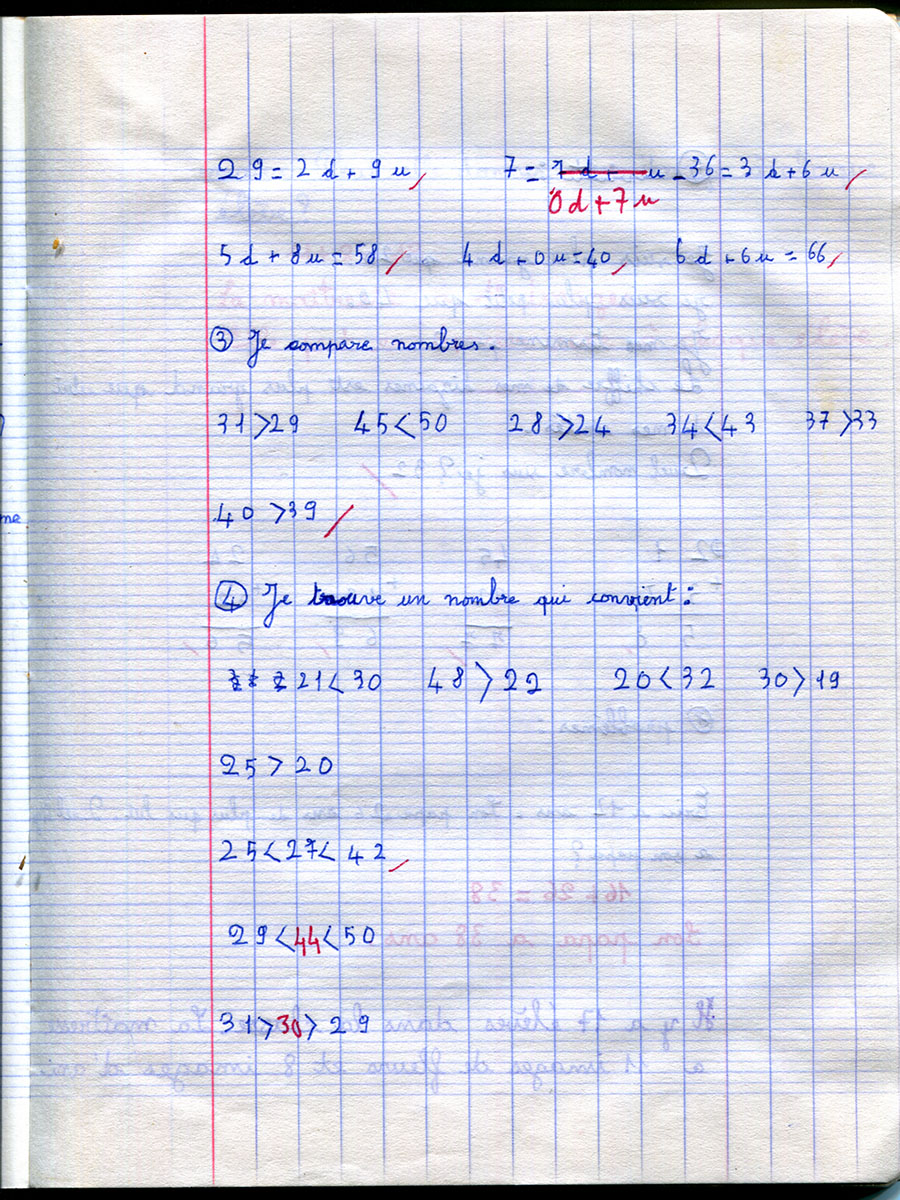 29 = 2d + 9u 7 = 7d + u - 36 = 3d + 6u
0d + 7u
5d + 8u = 58 4d + 0u = 40 6d + 6u = 66
③ Je compare nombres.
31 > 29 45 < 50 28 > 24 34 < 43 37 > 33
40 > 39
④ Je trouve un nombre qui convient :
21 < 30 48 > 22 20 < 32 30 > 19
25 > 20
25 < 27 < 42
29 < 44 < 50
31 > 30 > 29